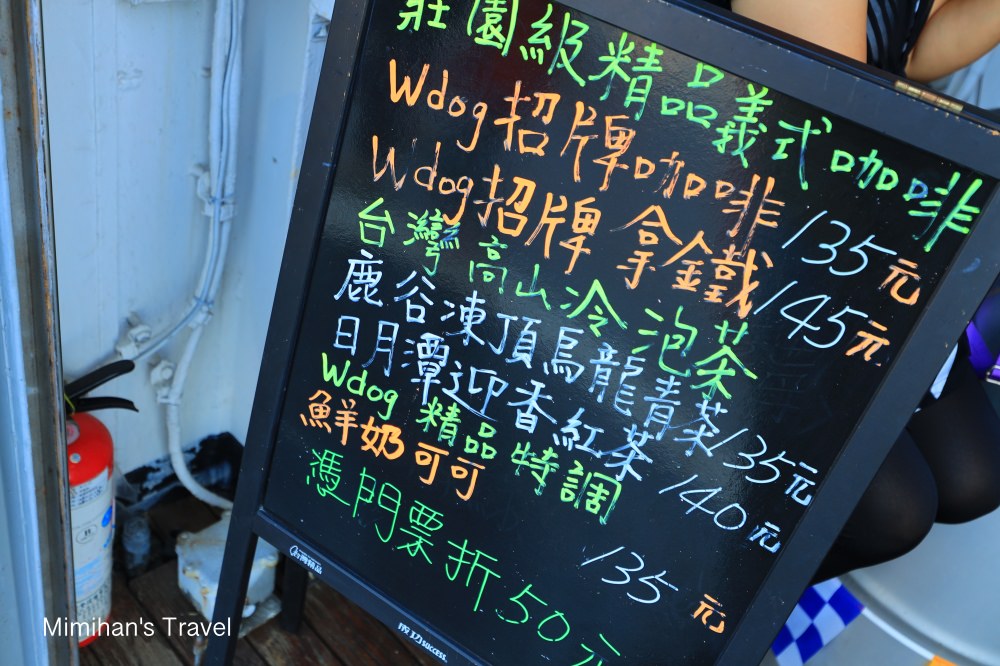 莊園級精品義式咖啡
Wdog招牌咖啡 135元
Wdog招牌 拿鐵 145元
台灣高山冷泡茶
鹿谷凍頂烏龍青茶 135元
日月潭迎香紅茶 140元
Wdog 精品特調
鮮奶可可 135元
憑門票折50元
成功 SUCCESS.
Mimihan's Travel